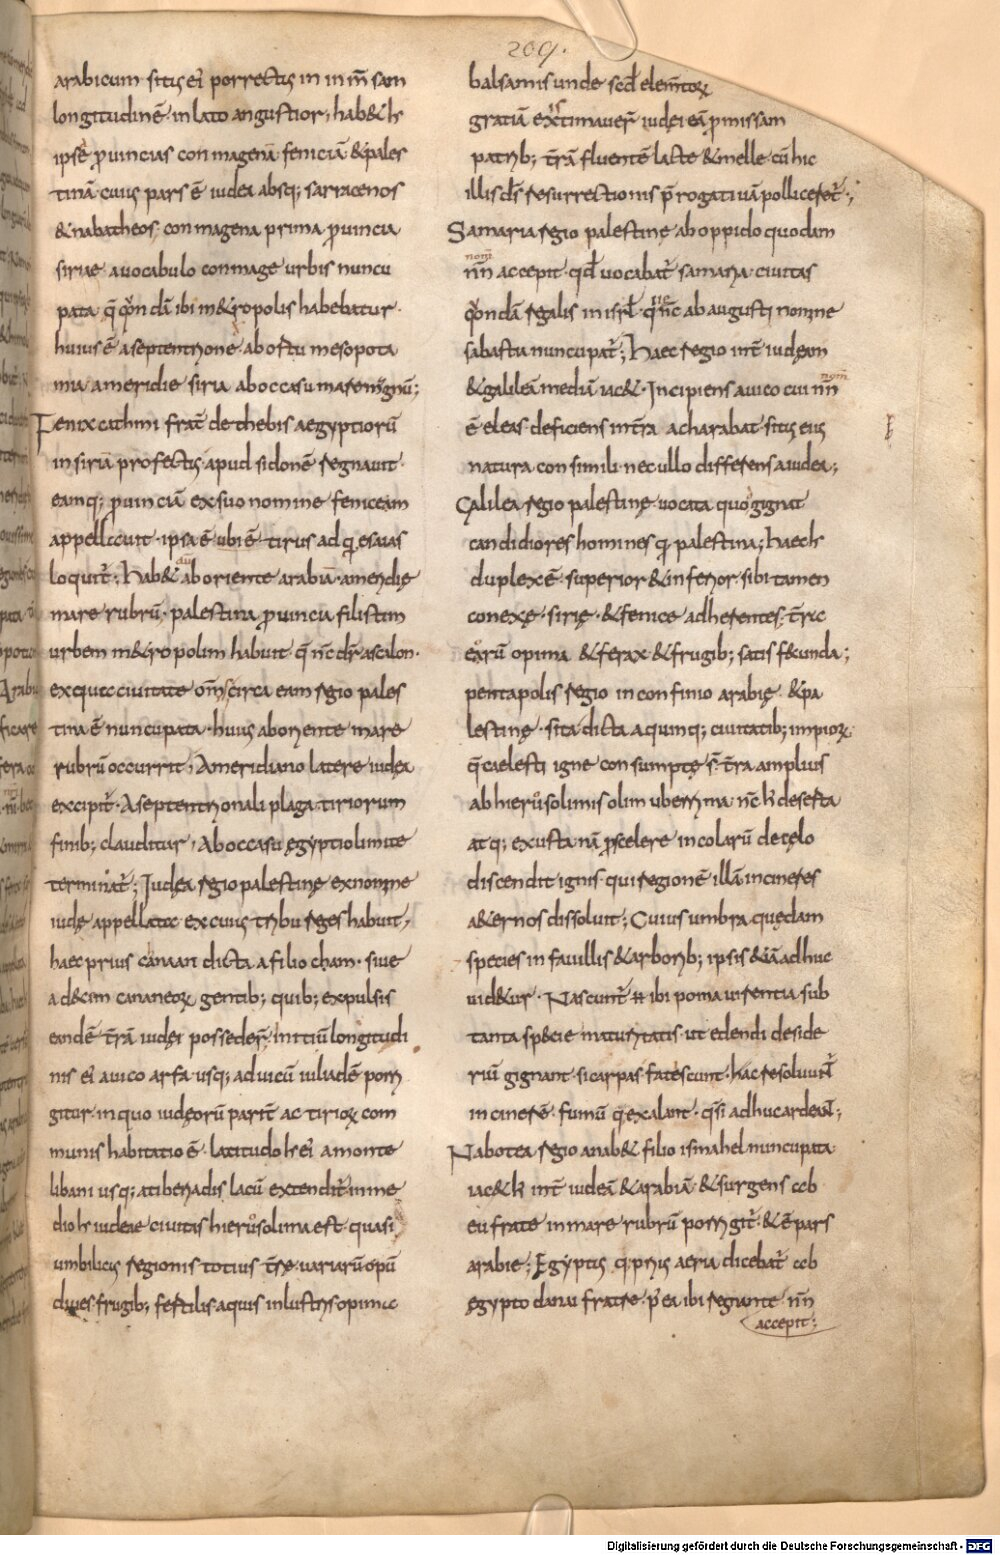 209.
arabicum situs ei porrectus in inm̄ sam
longitudinē· in lato angustior, hab& h̄
ipsę ꝓuincias conmagenā feniciā &pales
tinā cuius pars ē iudea absq; sarracenos
&nabatheos· conmagena prima ꝓuincia
siriae a uocabulo conmage urbis nuncu
pata q̄ q̊ndā ibi m&ropolis habebatur·
huius ē a septentrione· ab ortu mesopota
mia a meridie siria ab occasu mare mignū;
Fenix cathmi frat̄ de thebis aegyptiorū
in siriā profectus apud sidonē regnauit·
eamq; ꝓuinciā ex suo nomine feniceam
appellauit· ipsa ē ubi ē· tirus ad q̄ esaias
loquit̄; hab& aut̄ ab oriente arabiā· a meridię
mare rubrū· palestina ꝓuincia filistim
urbem m&ropolim habuit q̄ nc̄ dr̄ ascalon·
ex qua ciuitate om̄s circa eam regio pales
tina ē nuncupata· huius ab oriente mare
rubrū occurrit, A meridiano latere iudęa
excipit̄· A septentrionali plaga tiriorum
finib; clauditur, Ab occasu ęgyptio limite
terminat̄; Iudęa regio palestinę ex nomine
iudę appellata ex cuius tribu reges habuit,
haec prius canaan dicta a filio cham· siue
a decim cananeoꝝ gentib; quib; expulsis
eandē t̄rā iudęi posseder̄ initiū longitudi
nis ei a uico arfa usq; ad uicū iuliadē porri
gitur· in quo iudęorū parit̄ ac tirioꝝ com
munis habitatio ē· latitudo h̄ ei a monte
libani usq; at iberiadis lacū extendit̄· in me
dio h̄ iudeae ciuitas hierusolima est· quasi
umbilicus regionis totius t̄rę· uariarū opū
diues· frugib; fertilis aquis inlustris opima
balsamis unde scd̄ elem̄toꝝ
gratiā extimauer̄ iudęi eā ꝓmissam
patrib; t̄rā fluentē lacte &melle cū hic
illis d̄s resurrectionis p̄rogatiuā polliceret̄·;
Samaria regio palestinę ab oppido quodam
nomī
nn̄ accepit· qd̄ uocabat̄ samaria· ciuitas
q̊ndā regalis in isrl̄· q̄ nc̄ ab augusti nomine
sabastia nuncupat̄; haec regio int̄ iudęam
&galileā mediā iac&· Incipiens a uico cui nn̄
nom̄
ē eleas deficiens in t̄ra acharabat· situs eius
natura consimili· nec ullo differens a iudea;
Galilea regio palestinę· uocata quo gignat
candidiores homines q̄ palestina; haec h̄
duplex ē· superior &inferior· sibi tamen
conexę· sirię· &fenice adherentes; t̄ra
earū opima &ferax &frugib; satis fecunda;
pentapolis regio in confinio arabię· &pa
lestinę· sita dicta a quinq; ciuitatib; impioꝝ·
q̄ caelesti igne consumptę s̄· t̄ra amplius
ab hierusolimis olim uberrima· nc̄ h̄ deserta
atq; exusta· nā ꝓ scelere incolarū de cęlo
discendit ignis qui regionē illā in cineres
aeternos dissoluit; Cuius umbra quędam
species in fauillis &arborib; ipsis &iā adhuc
uid&ur· Nascunt̄ ibi poma uirentia sub
tanta specie maturitatis· ut edendi deside
riū gignant· si carpas fatescunt· hac resoluunt̄
in cinerē· fumū q; exalant· q̄si adhuc ardeant;
Nabotea regio a nab& filio ismahel nuncupata·
iac& h̄ int̄ iudeā &arabiā· &surgens ab
eufrate in mare rubrū porrigit̄· &ē pars
arabię; Egyptus q̄ prius aeria dicebat̄ ab
ęgypto danai fratre· p̄ ea ibi regnante nn̄
accepit;
Digitalisierung gefördert durch die Deutsche Forschungsgemeinschaft - DFG